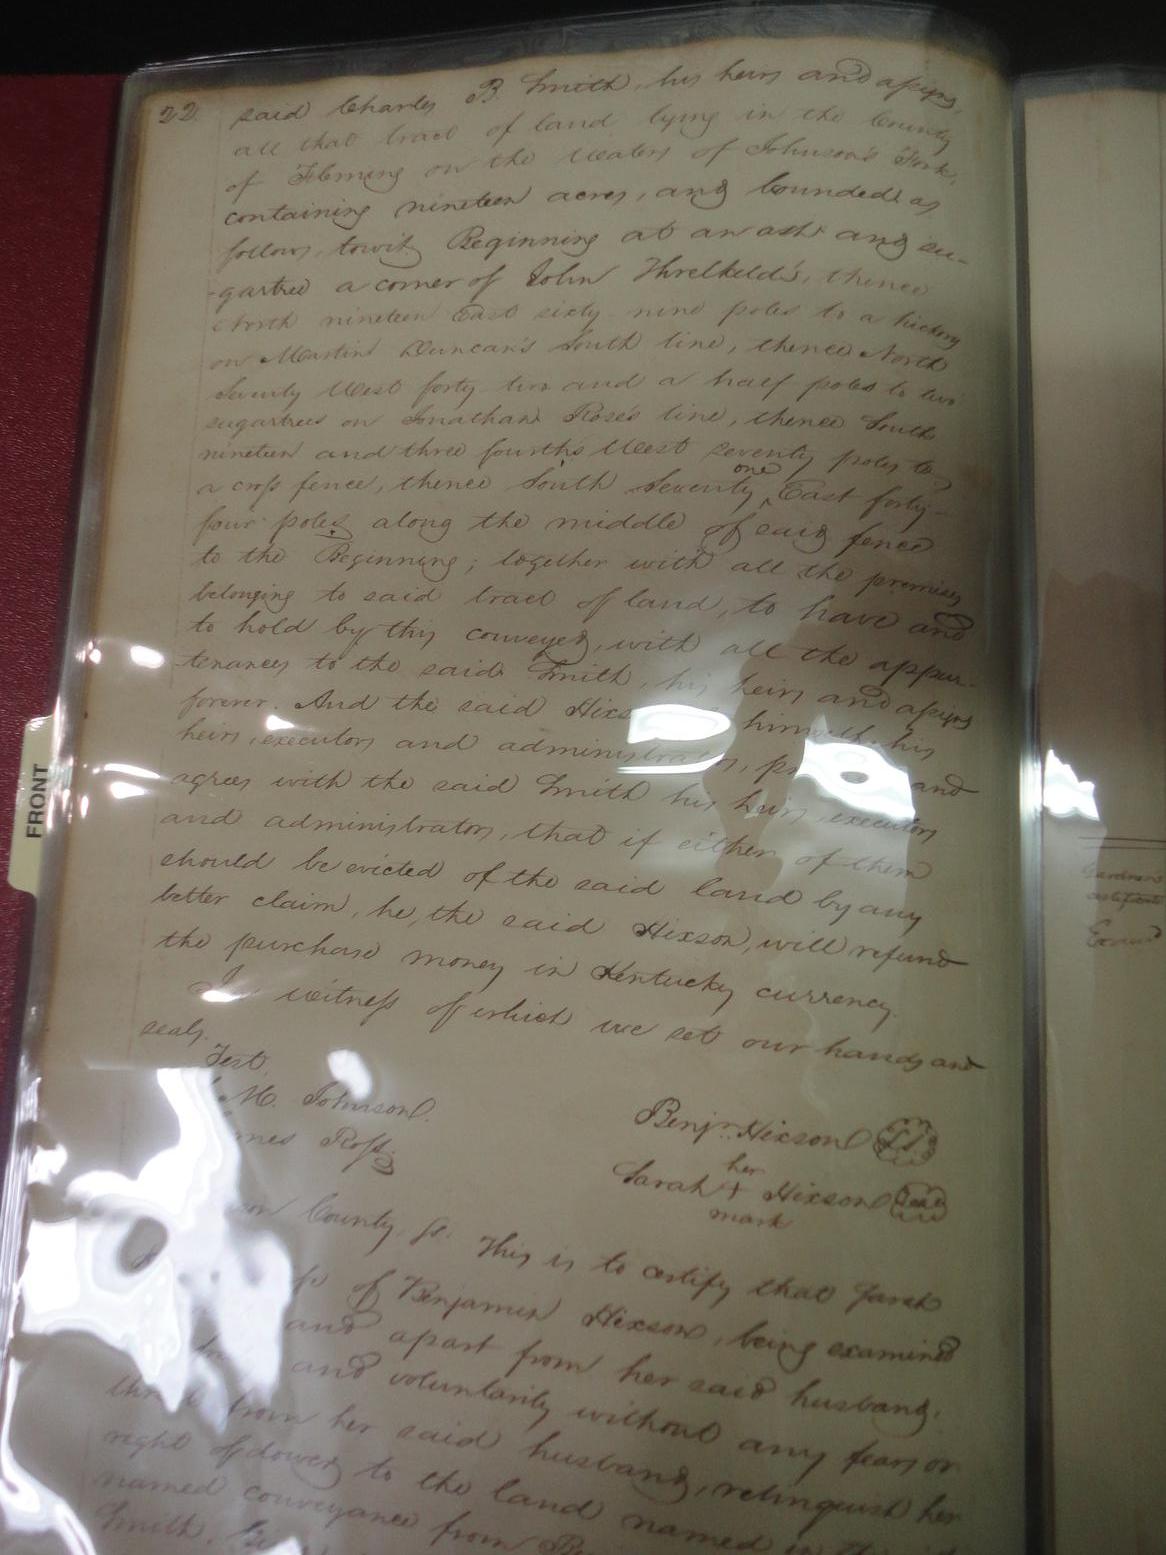 22. said Charles B. Smith, his heirs and assigns,
all that tract of land lying in the County
of Fleming on the Waters of Johnson's Fork,
containing nineteen acres, and bounded as
follows, towit, Beginning at an ash and su-
-gartree a corner of John Threlkeld's, thence
North nineteen East sixty nine poles to a hickory
on Martin Duncan's South line, thence North
Seventy West forty two and a half poles to two
sugartrees on Jonathan Rose's line, thence South
nineteen and three fourths West seventy poles to
a cross fence, thence South Seventy one East forty-
four poles along the middle of said fence
to the Beginning; together with all the premises
belonging to said tract of land, to have and
to hold by this conveyed, with all the appur-
tenances to the said Smith, his heirs and assigns
forever. And the said himself, his
heirs, executors and administrators, and
agrees with the said Smith his heirs, executors
and administrators, that if either of them
should be evicted of the said land by any
better claim, he, the said Hixson, will refund
the purchase money in Kentucky currency.
In witness of which we set our hands and
seals.
Test,
M. Johnson.
Ross
Benjn. Hixson L.S.
Sarah her + mark Hixson Seal
County, Sc. This is to certify that Sarah
of Benjamin Hixson, being examined
and apart from her said husband,
and voluntarily without any fears or
from her said husband, relinquish her
right of dower to the land named in the
named conveyance from
Smith.
FRONT